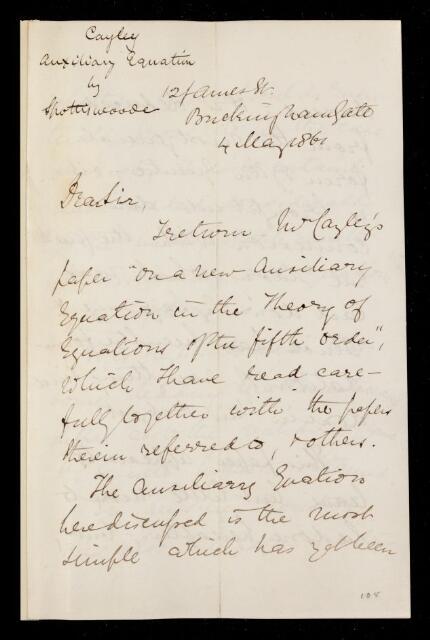 Cayley
Auxiliary Equation
by
Spottiswoode
12 James St.
Buckingham Gate
4 May 1861
Dear Sir,
I return Mr Cayley's
paper "on a new Auxiliary
Equation in the Theory of
Equations of the fifth order",
which I have read care-
fully together with the papers
therein referred to, & others.
The Auxiliary Equation
here discussed is the most
simple which has yet been
108